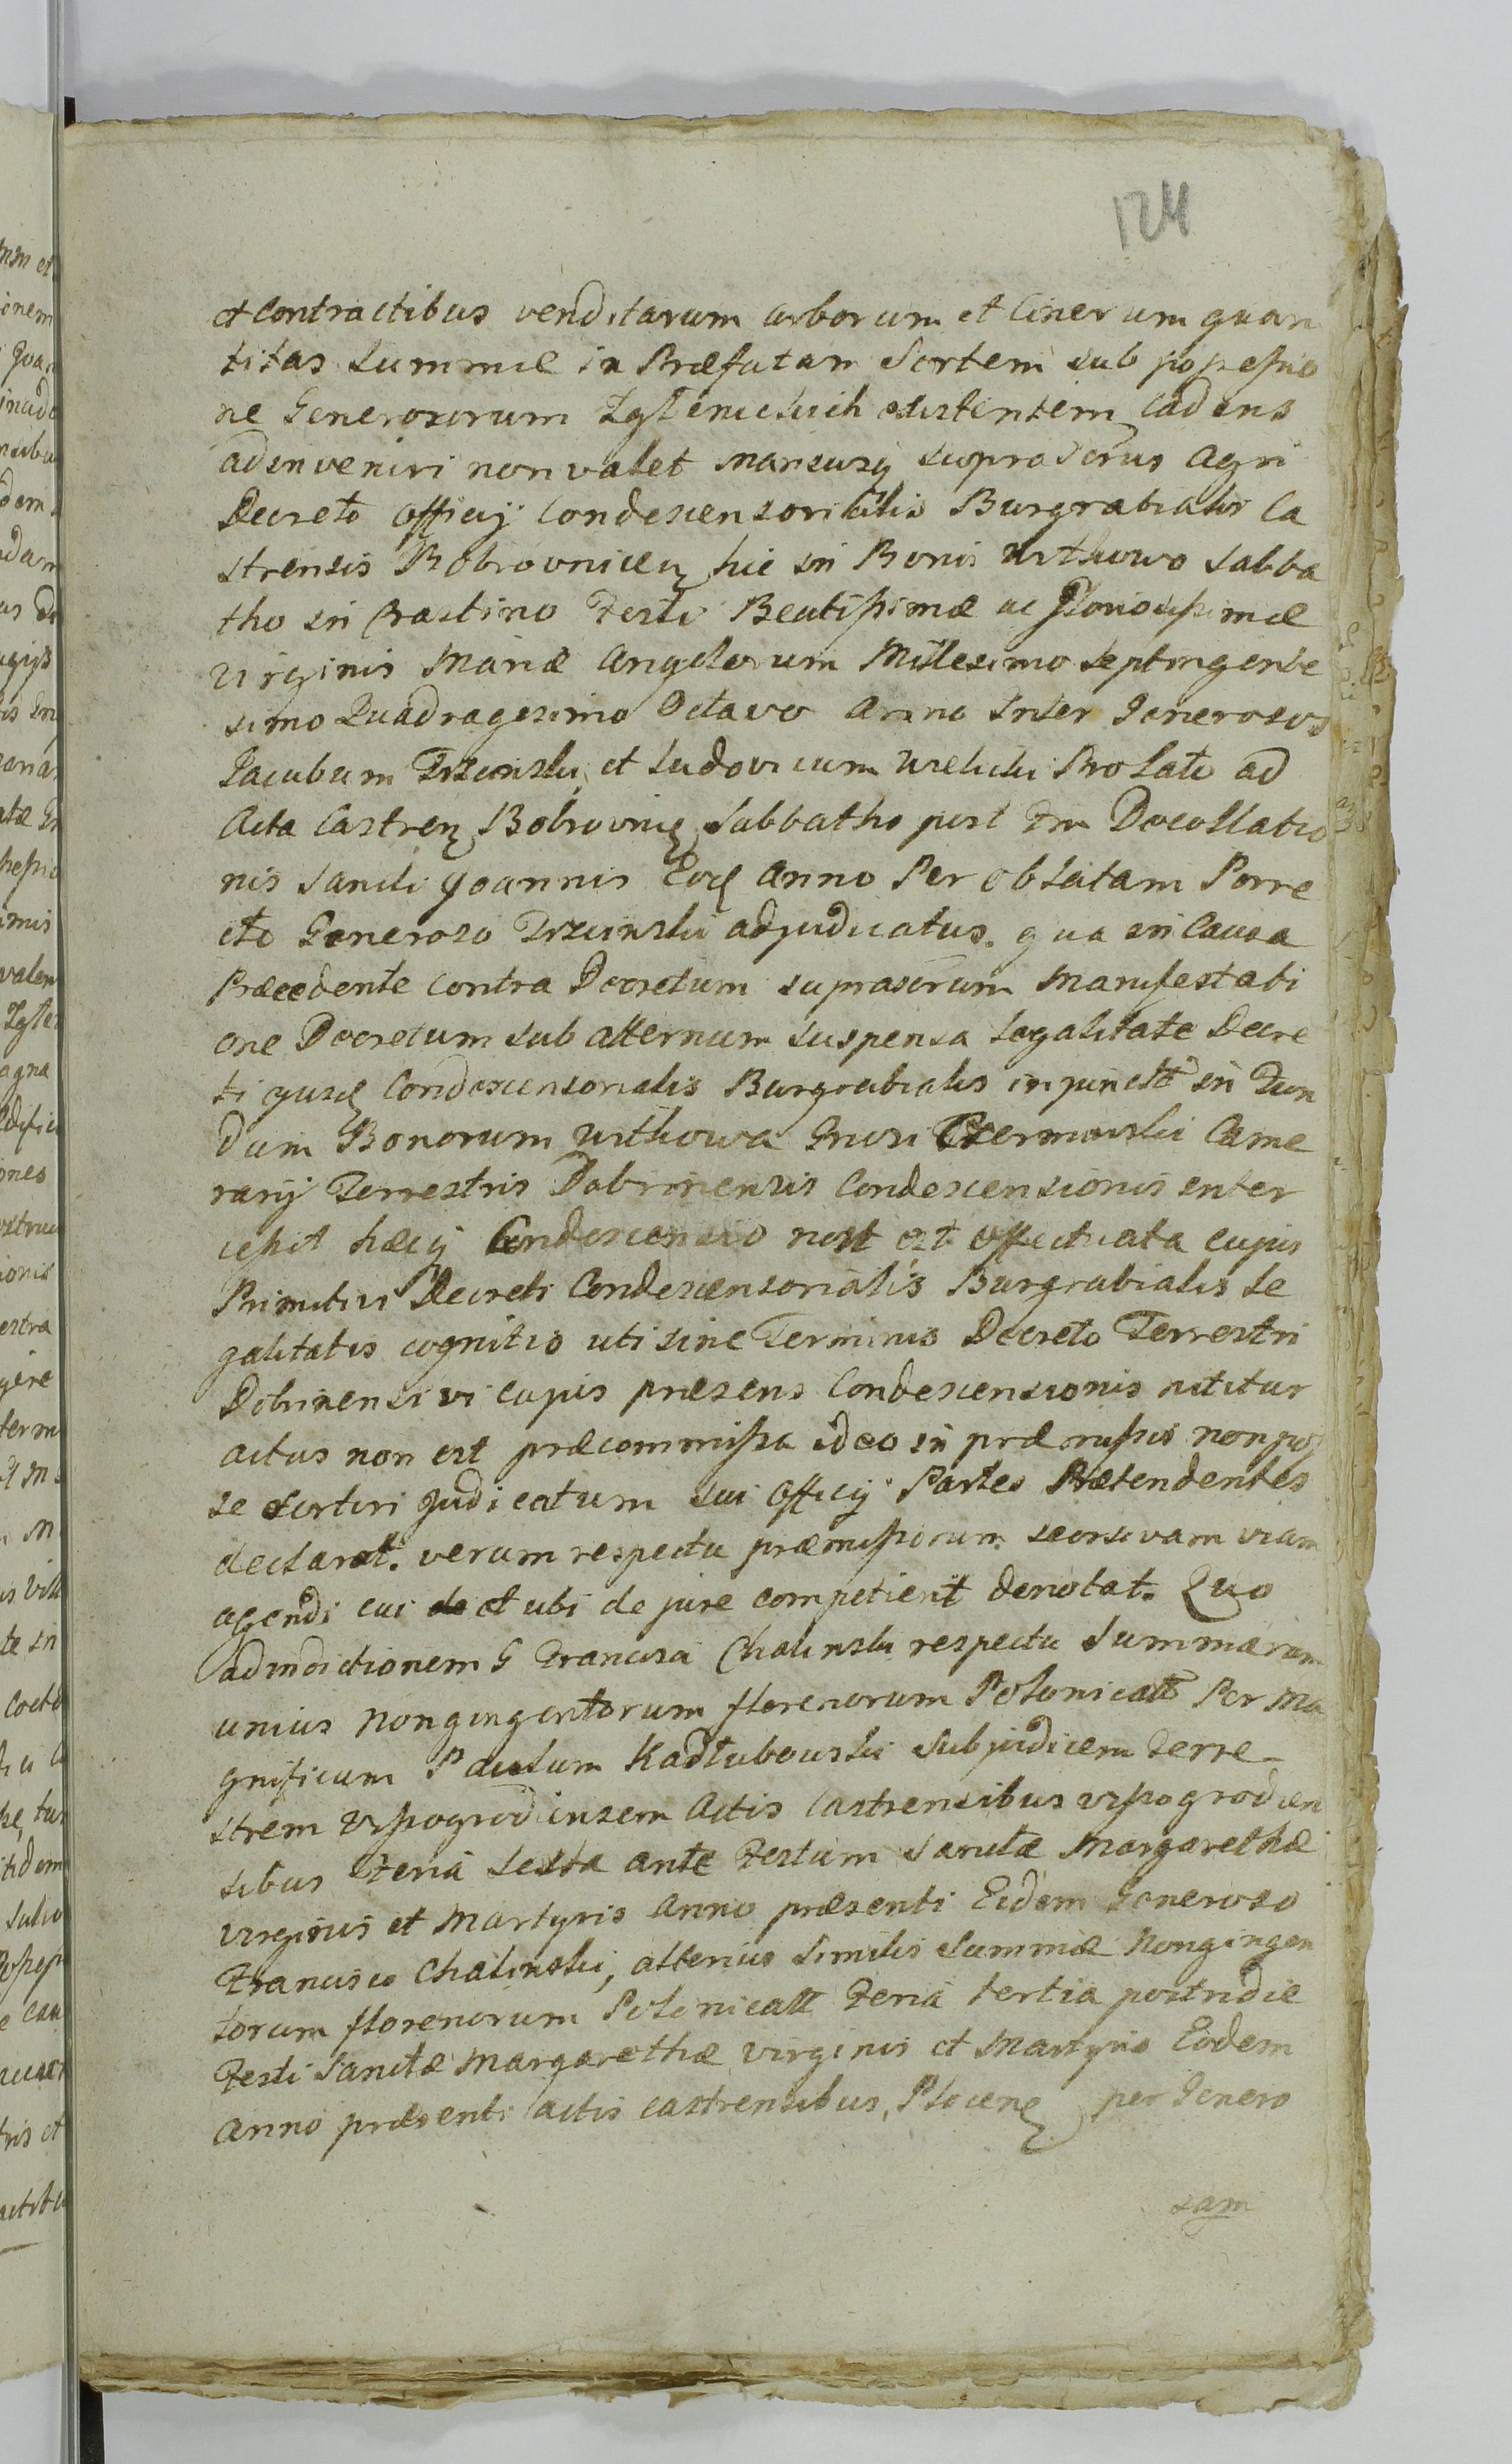 124
et Contractibus venditarum arborum et Cinerum quan
titas Summæ in Præfatam Sortem sub possessio
ne Generosorum existentem cadens
adinveniri non valet mansusq suprascrus Agri
Decreto Officij Condescensorialis Burgrabialis Ca
strensis Bobrovnicen hic in Bonis Witkowo Sabba
tho in Crastino Festi Beatissimæ ac Gloriosissimæ
Virginis Mariæ Angelorum Millesimo Septingente
simo Quadragesimo Octavo Anno Inter Generosos
Jacubum Trzcinski, et Ludovicum Prolato ad
Acta Castren Bobrovnic Sabbatho post Fm Decollatio
nis Sancti Joannis Eod Anno Per Oblatam Porre
cto Generoso Trzcinski adjudicatus. qua in Causa
Præcedente contra Decretum suprascrum Manifestati
one Decretum sub alternum suspensa legalitate Decre
ti ejusd Condescensorialis Burgrabialis in punctô in Fun
dum Bonorum Witkowa Grosi Czerminski Came
rarij Terrestris Dobrinensis Condescensionis inter
cessit hæcq Condescensio non est effectuata cujus
Primitivi Decreti Condescensorialis Burgrabialis le
galitatis cognitio uti sine Terminis Decreto Terrestri
Dobrinensi vi cujus præsens Condescensionis nititur
actus non est præcommissa ideo in præmissis non pos
se sortiri Judicatum sui Officij Partes Prætendentes
declarat. verum respectu præmissorum seorsivam viam
agendi cui et ubi de jure competierit denotat. Quo
ad indictionem G Francisci Chalinski respectu Summarum
unius Nongingentorum florenorum Polonicall Per Ma
gnificum Paulum Kadłubowski Subjudicem Terre-
strem Wyssogrodiensem Actis Castrensibus Wyssogrodien
sibus Feria Sexta ante Festum Sanctæ Margarethæ
Virginis et Martyris Anno præsenti Eidem Generoso
Francisco Chalinski, alterius similis Summæ Nongingen
torum florenorum Polonicall Feria tertia postridie
Festi Sanctæ Margarethæ Virginis et Martyris Eodem
Anno præsenti Actis castrensibus, Plocens per Genero
sam